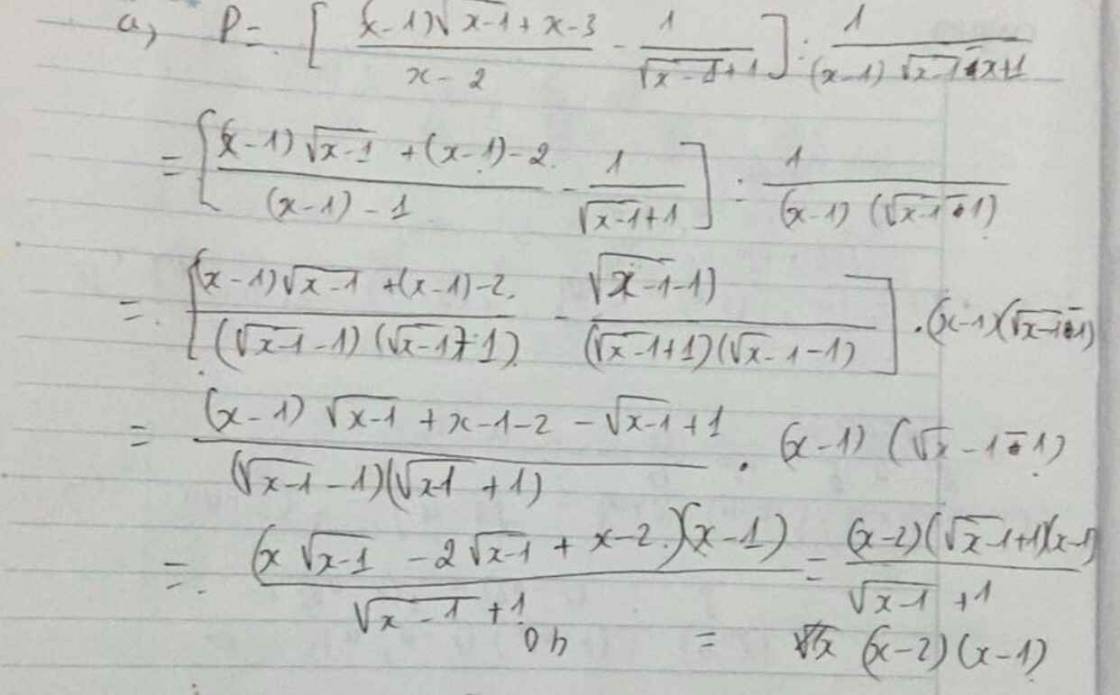 a, P = [ ((x-1)√(x-1) + x-3)/(x-2) - 1/(√(x-1)+1) ] : 1/((x-1)√(x-1)-x+1)
= [ ((x-1)√(x-1) + (x-1)-2)/((x-1)-1) - 1/(√(x-1)+1) ] : 1/((x-1)(√(x-1)-1))
= [ ((x-1)√(x-1) + (x-1)-2)/((√(x-1)-1)(√(x-1)+1)) - (√(x-1)-1)/((√(x-1)+1)(√(x-1)-1)) ] . (x-1)(√(x-1)-1)
= ((x-1)√(x-1) + x-1-2 - √(x-1)+1)/((√(x-1)-1)(√(x-1)+1)) . (x-1)(√(x-1)-1)
= (x√(x-1) - 2√(x-1) + x-2)(x-1)/(√(x-1)+1) = (x-2)(√(x-1)+1)(x-1)/(√(x-1)+1)
= (x-2)(x-1)